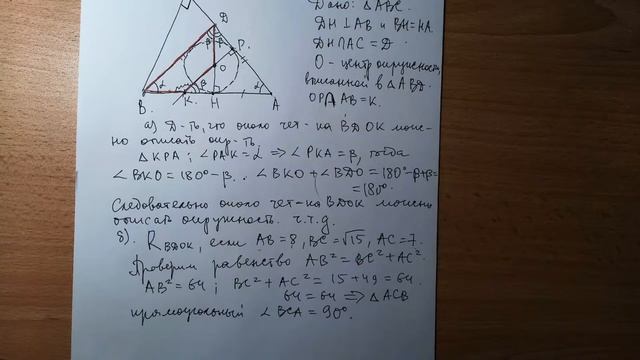 Дано: △ABC.
DH ⊥ AB и BH = HA.
DH ∩ AC = D.
O - центр окружности,
вписанной в △ABD.
OP ∩ AB = K.
D
P.
β
β
O
α
β
α
B.
K.
H
A
а) Д-ть, что около чет-ка BDOK мож-
но описать окр-ть.
△KPA; ∠PAK = α ⇒ ∠PKA = β, тогда
∠BKO = 180° - β. ∠BKO + ∠BDO = 180° - β + β =
= 180°.
Следовательно около чет-ка BDOK можно
описать окружность. ч.т.д.
б). R BDOK, если AB = 8, BC = √15, AC = 7.
Проверим равенство AB² = BC² + AC².
AB² = 64; BC² + AC² = 15 + 49 = 64.
64 = 64 ⇒ △ACB
прямоугольный ∠BCA = 90°.